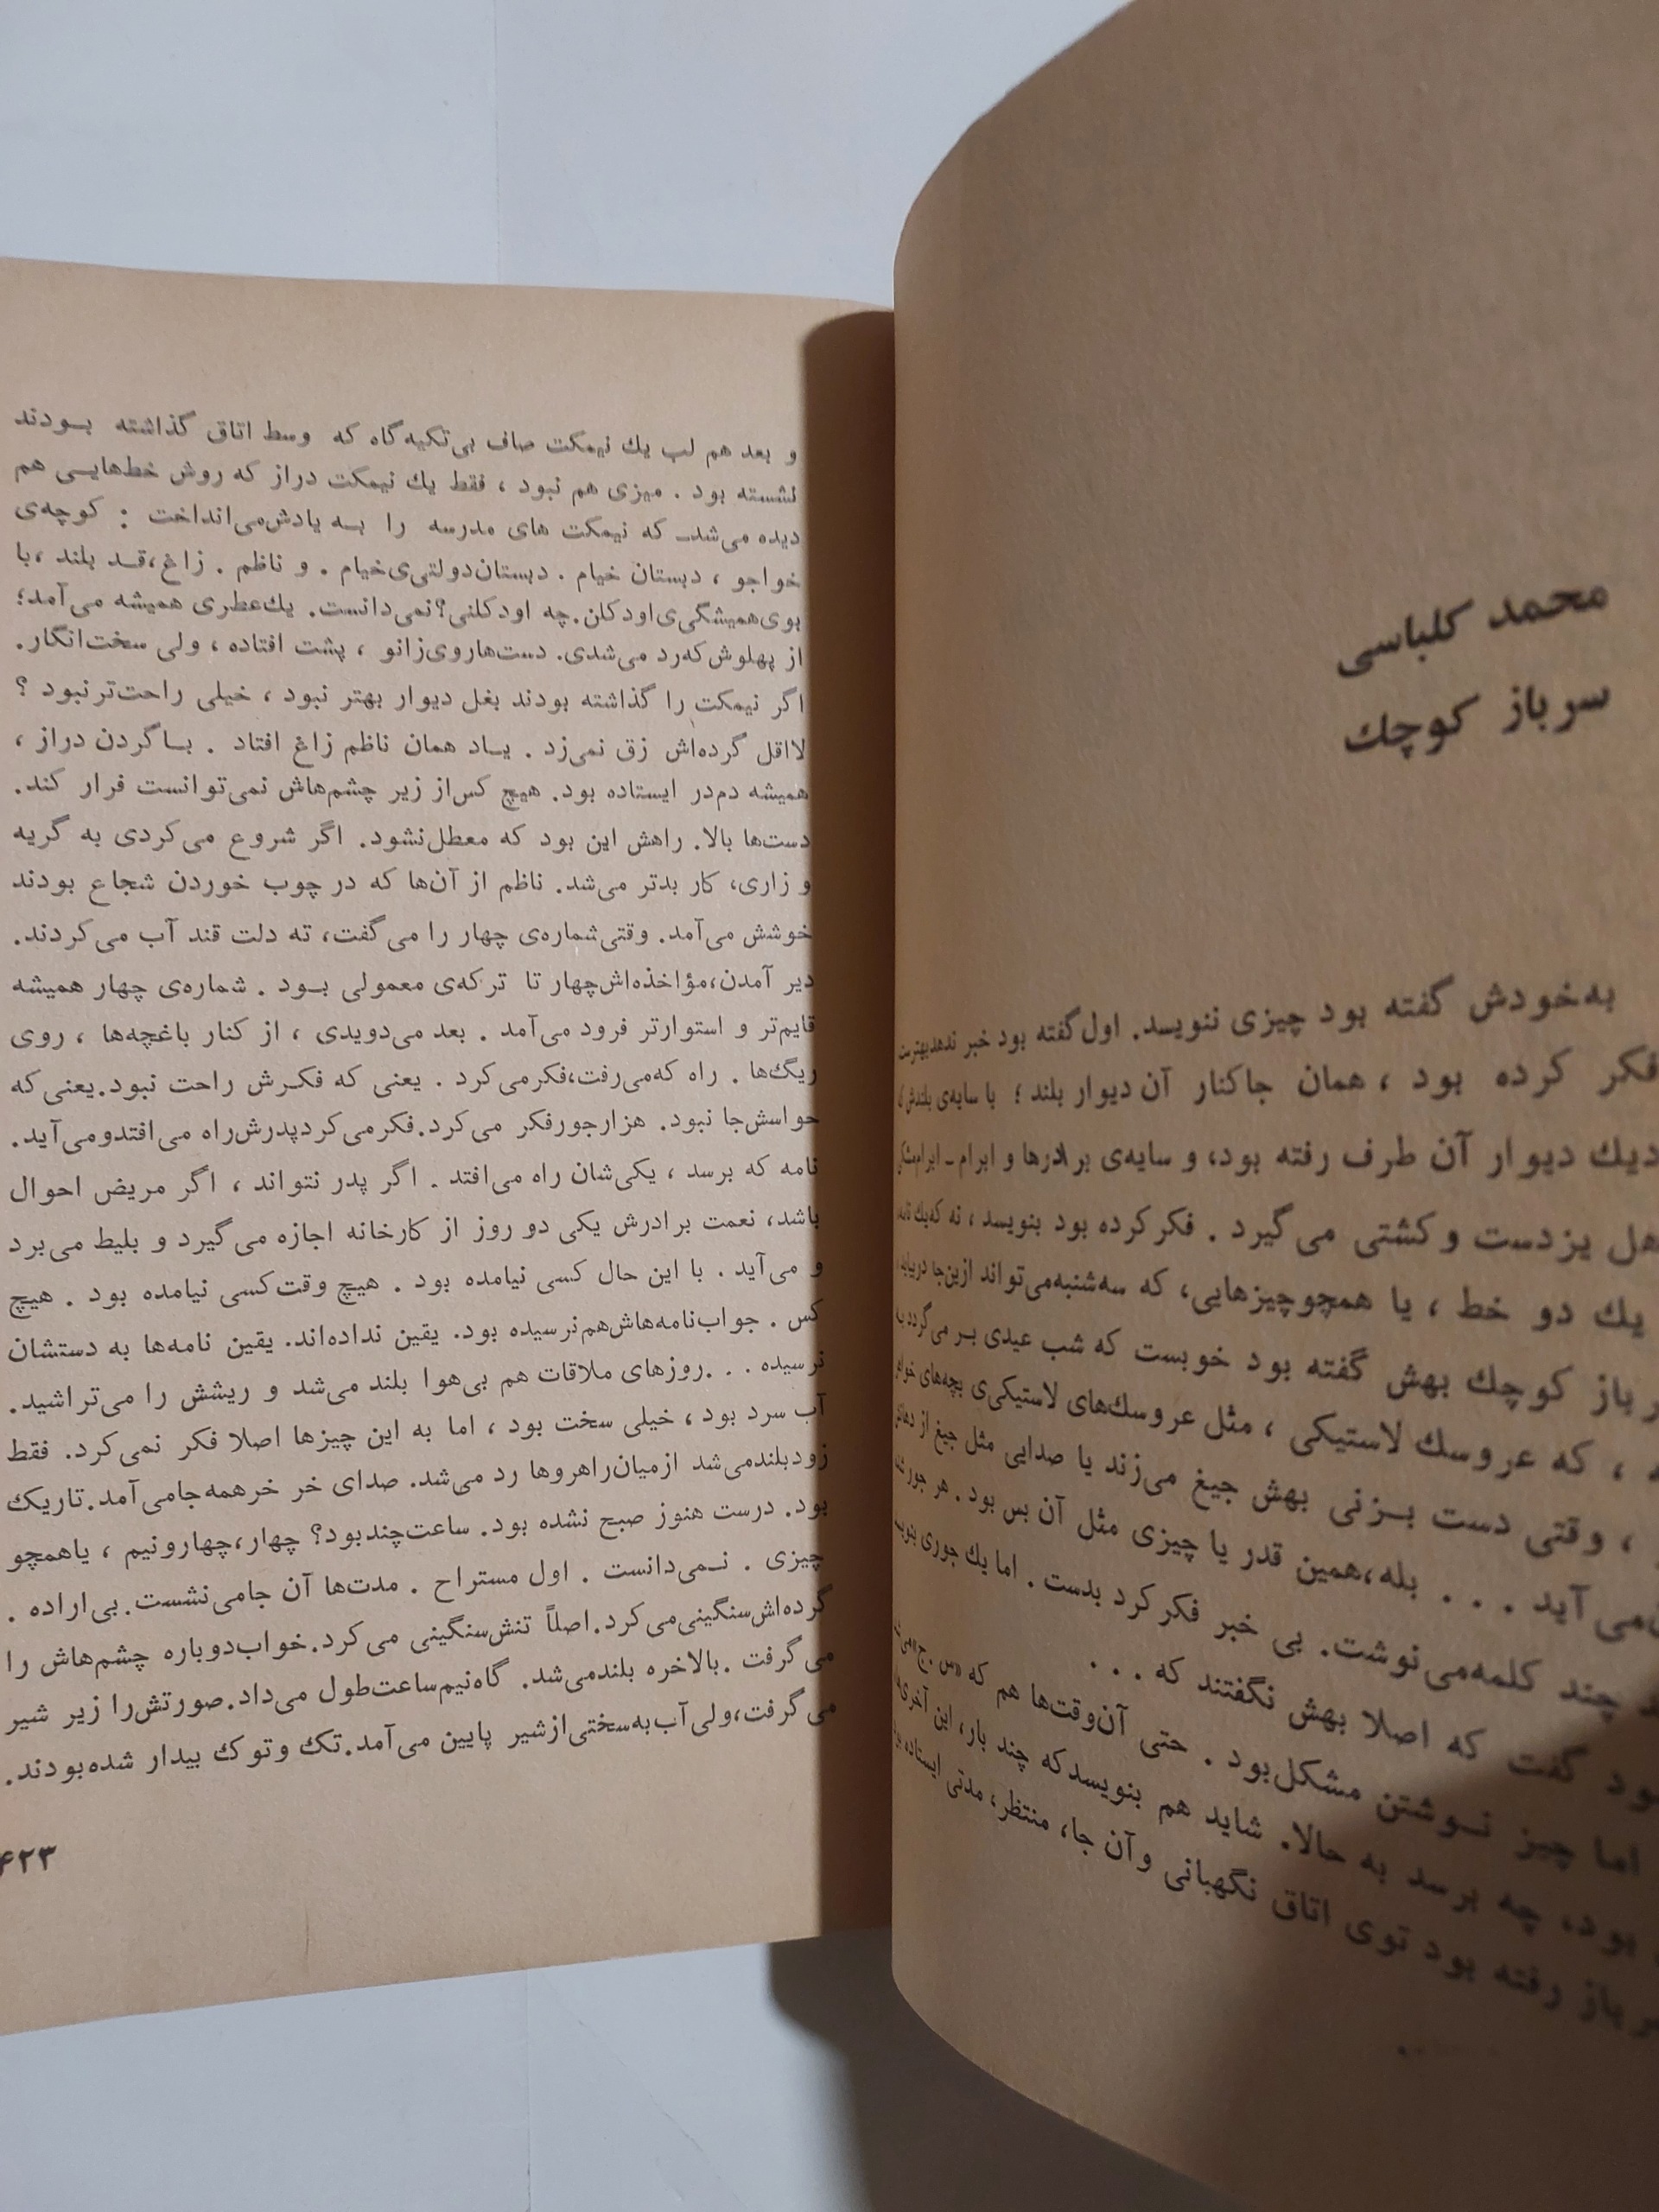 محمد کلباسی
سرباز کوچك
به‌خودش گفته بود چیزی ننویسد. اول گفته بود خبر ندهد بهترست
فکر کرده بود ، همان جا کنار آن دیوار بلند ؛ با سایه‌ی بلندش
دیك دیوار آن طرف رفته بود، و سایه‌ی برادرها و ابرام ـ ابرام
هل یزدست و کشتی می‌گیرد . فکر کرده بود بنویسد ، نه که یك نامه
یك دو خط ، یا همچو چیزهایی، که سه‌شنبه می‌تواند ازین‌جا
باز کوچك بهش گفته بود خوبست که شب عیدی بـر می‌گردد
، که عروسك لاستیکی ، مثل عروسك‌های لاستیکی‌ی بچه‌های
، وقتی دست بـزنی بهش جیغ می‌زند یا صدایی مثل جیغ از
می‌آید . . . بله، همین قدر یا چیزی مثل آن بس بود . هر جور
چند کلمه می‌نوشت. بی خبر فکر کرد بدست . اما یك جوری
گفت که اصلا بهش نگفتند که . . .
اما چیز نـوشتن مشکل بود . حتی آن‌وقت‌ها هم که «س . ج»
بود، چه برسد به حالا. شاید هم بنویسد که چند بار، این آخری
باز رفته بود توی اتاق نگهبانی و آن جا، منتظر، مدتی ایستاده
و بعد هم لب یك نیمکت صاف بی‌تکیه‌گاه که وسط اتاق گذاشته بـودند
نشسته بود . میزی هم نبود ، فقط یك نیمکت دراز که روش خط‌هایـی هم
دیده می‌شد ـ که نیمکت های مدرسه را بـه یادش می‌انداخت : کوچه‌ی
خواجو ، دبستان خیام . دبستان دولتی‌ی خیام . و ناظم . زاغ، قـد بلند ، با
بوی همیشگی‌ی اودکلن. چه اودکلنی؟ نمی‌دانست. یك عطری همیشه می‌آمد؛
از پهلوش که رد می‌شدی. دست‌ها روی زانو ، پشت افتاده ، ولی سخت انگار.
اگر نیمکت را گذاشته بودند بغل دیوار بهتر نبود ، خیلی راحت‌تر نبود ؟
لااقل گرده‌اش زق نمی‌زد . یـاد همان ناظم زاغ افتاد . بـا گردن دراز ،
همیشه دم در ایستاده بود. هیچ کس از زیر چشم‌هاش نمی‌توانست فرار کند.
دست‌ها بالا. راهش این بود که معطل نشود. اگر شروع می‌کردی به گریه
و زاری، کار بدتر می‌شد. ناظم از آن‌ها که در چوب خوردن شجاع بودند
خوشش می‌آمد. وقتی شماره‌ی چهار را می‌گفت، ته دلت قند آب می‌کردند.
دیر آمدن، مؤاخذه‌اش چهار تا ترکه‌ی معمولی بـود . شماره‌ی چهار همیشه
قایم‌تر و استوارتر فرود می‌آمد . بعد می‌دویدی ، از کنار باغچه‌ها ، روی
ریگ‌ها . راه که می‌رفت، فکر می‌کرد . یعنی که فکـرش راحت نبود. یعنی که
حواسش جا نبود. هزار جور فکر می‌کرد. فکر می‌کرد پدرش راه می‌افتد و می‌آید.
نامه که برسد ، یکی‌شان راه می‌افتد . اگر پدر نتواند ، اگر مریض احوال
باشد، نعمت برادرش یکی دو روز از کارخانه اجازه می‌گیرد و بلیط می‌برد
و می‌آید . با این حال کسی نیامده بود . هیچ وقت کسی نیامده بود . هیچ
کس . جواب نامه‌هاش هم نرسیده بود. یقین نداده‌اند. یقین نامه‌ها به دستشان
نرسیده . . . روزهای ملاقات هم بی‌هوا بلند می‌شد و ریشش را می‌تراشید.
آب سرد بود ، خیلی سخت بود ، اما به این چیزها اصلا فکر نمی‌کرد. فقط
زود بلند می‌شد از میان راهروها رد می‌شد. صدای خر خر همه جا می‌آمد. تاریک
بود. درست هنوز صبح نشده بود. ساعت چند بود؟ چهار، چهارونیم ، یا همچو
چیزی . نـمی‌دانست . اول مستراح . مدت‌ها آن جا می‌نشست. بی‌اراده .
گرده‌اش سنگینی می‌کرد. اصلاً تنش سنگینی می‌کرد. خواب دوباره چشم‌هاش را
می‌گرفت . بالاخره بلند می‌شد. گاه نیم ساعت طول می‌داد. صورتش را زیر شیر
می‌گرفت، ولی آب به سختی از شیر پایین می‌آمد. تک و توک بیدار شده بودند.
۴۲۳